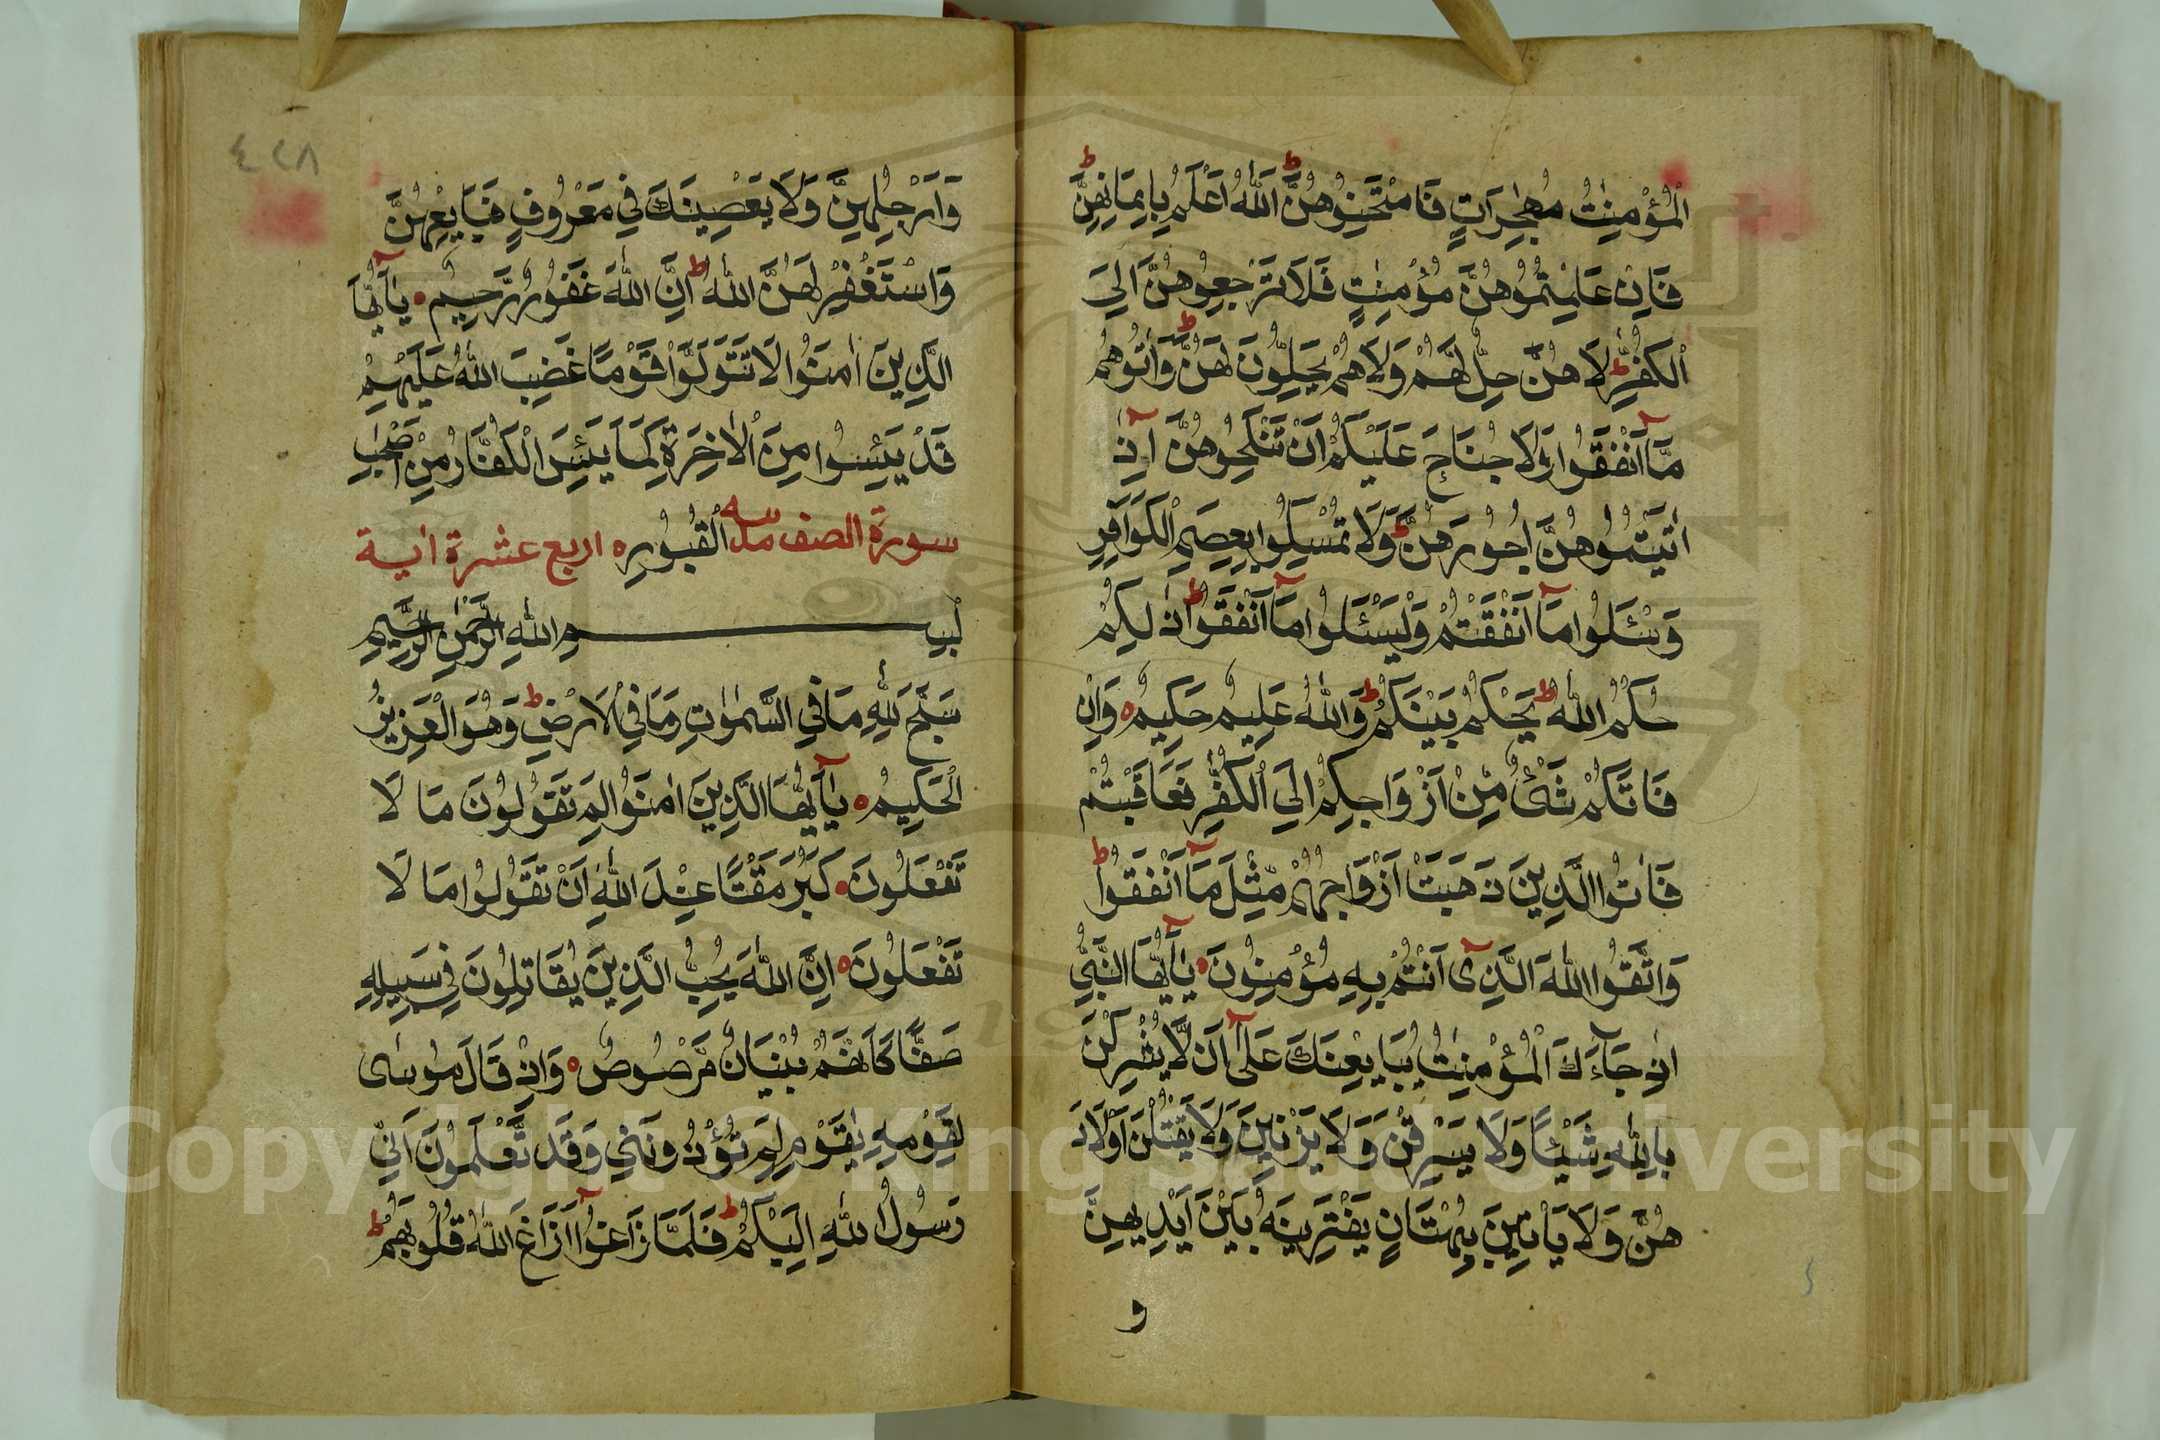 الْمُؤْمِنٰتُ مُهٰجِرَاتٍ فَامْتَحِنُوهُنَّ ط اَللّٰهُ اَعْلَمُ بِاِيمَانِهِنَّ ط
فَاِنْ عَلِمْتُمُوهُنَّ مُؤْمِنٰتٍ فَلَا تَرْجِعُوهُنَّ اِلَى
الْكُفَّارِ ط لَا هُنَّ حِلٌّ لَهُمْ وَلَا هُمْ يَحِلُّونَ لَهُنَّ ط وَاٰتُوهُمْ
مَّا اَنْفَقُوا وَلَا جُنَاحَ عَلَيْكُمْ اَنْ تَنْكِحُوهُنَّ اِذَا
اٰتَيْتُمُوهُنَّ اُجُورَهُنَّ ط وَلَا تُمْسِكُوا بِعِصَمِ الْكَوَافِرِ
وَسْئَلُوا مَا اَنْفَقْتُمْ وَلْيَسْئَلُوا مَا اَنْفَقُوا ط ذٰلِكُمْ
حُكْمُ اللّٰهِ ط يَحْكُمُ بَيْنَكُمْ ط وَاللّٰهُ عَلِيمٌ حَكِيمٌ وَاِنْ
فَاتَكُمْ شَىْءٌ مِّنْ اَزْوَاجِكُمْ اِلَى الْكُفَّارِ فَعَاقَبْتُمْ
فَاٰتُوا الَّذِينَ ذَهَبَتْ اَزْوَاجُهُمْ مِّثْلَ مَا اَنْفَقُوا ط
وَاتَّقُوا اللّٰهَ الَّذِى اَنْتُمْ بِهِ مُؤْمِنُونَ يٰاَيُّهَا النَّبِيُّ
اِذَا جَاءَكَ الْمُؤْمِنٰتُ يُبَايِعْنَكَ عَلٰى اَنْ لَّا يُشْرِكْنَ
بِاللّٰهِ شَيْئًا وَلَا يَسْرِقْنَ وَلَا يَزْنِينَ وَلَا يَقْتُلْنَ اَوْلَادَ
هُنَّ وَلَا يَأْتِينَ بِبُهْتَانٍ يَفْتَرِينَهُ بَيْنَ اَيْدِيهِنَّ
و
٤٢٨
وَاَرْجُلِهِنَّ وَلَا يَعْصِينَكَ فِي مَعْرُوفٍ فَبَايِعْهُنَّ
وَاسْتَغْفِرْ لَهُنَّ اللّٰهَ ط اِنَّ اللّٰهَ غَفُورٌ رَّحِيمٌ يٰاَيُّهَا
الَّذِينَ اٰمَنُوا لَا تَتَوَلَّوْا قَوْمًا غَضِبَ اللّٰهُ عَلَيْهِمْ
قَدْ يَئِسُوا مِنَ الْاٰخِرَةِ كَمَا يَئِسَ الْكُفَّارُ مِنْ اَصْحٰبِ
سورة الصف الْقُبُورِ اربع عشرة اية
بِسْمِ اللّٰهِ الرَّحْمٰنِ الرَّحِيمِ
سَبَّحَ لِلّٰهِ مَا فِي السَّمٰوٰتِ وَمَا فِي الْاَرْضِ ط وَهُوَ الْعَزِيزُ
الْحَكِيمُ يٰاَيُّهَا الَّذِينَ اٰمَنُوا لِمَ تَقُولُونَ مَا لَا
تَفْعَلُونَ كَبُرَ مَقْتًا عِنْدَ اللّٰهِ اَنْ تَقُولُوا مَا لَا
تَفْعَلُونَ اِنَّ اللّٰهَ يُحِبُّ الَّذِينَ يُقَاتِلُونَ فِي سَبِيلِهِ
صَفًّا كَاَنَّهُمْ بُنْيَانٌ مَّرْصُوصٌ وَاِذْ قَالَ مُوسٰى
لِقَوْمِهِ يٰقَوْمِ لِمَ تُؤْذُونَنِي وَقَدْ تَّعْلَمُونَ اَنِّي
رَسُولُ اللّٰهِ اِلَيْكُمْ ط فَلَمَّا زَاغُوا اَزَاغَ اللّٰهُ قُلُوبَهُمْ ط
Copyright © King Saud University